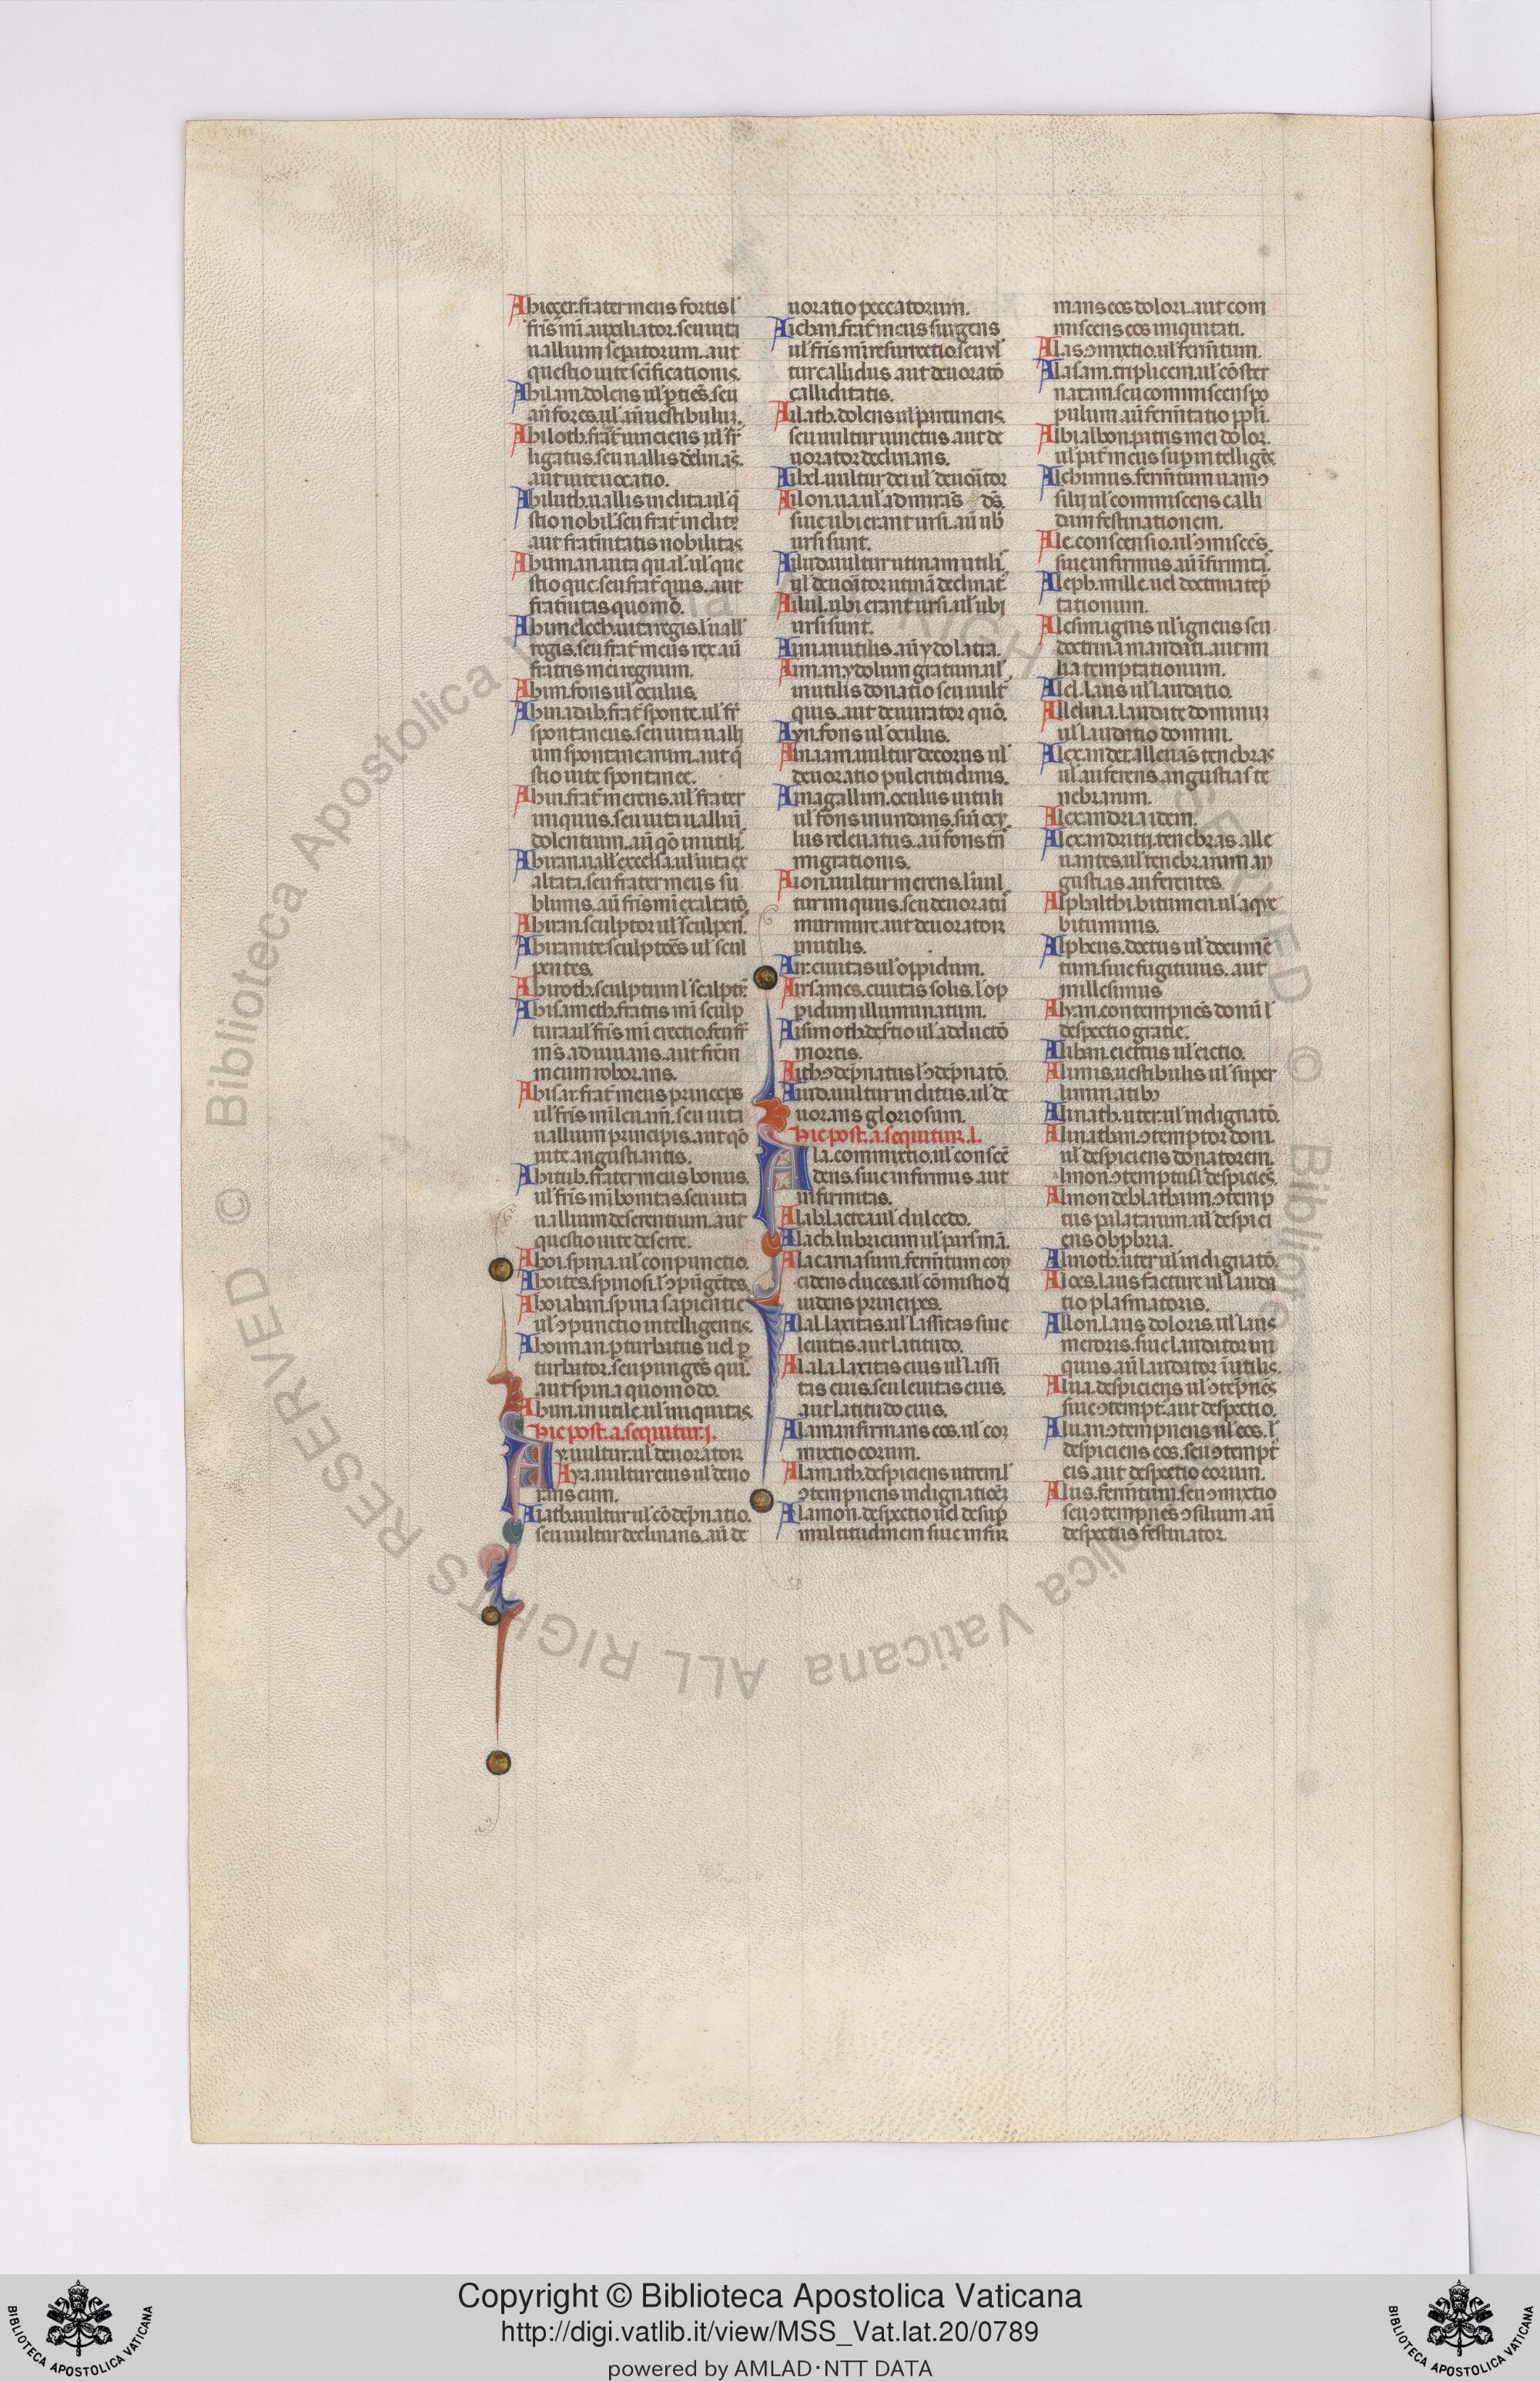 Abiezer. frater meus fortis l'
fr̄is mī auxiliator. seu uita
uallium sepitorum. aut
questio uite sc̄ificationis.
Abilam. dolens ul' ꝑtiēs. seu
aū fores. ul' aū uestibuluꝫ.
Abiloth. frat̄ uinciens ul' fr̄
ligatus. seu uallis declinās.
aut uite uocatio.
Abiluth. uallis inclita. ul' q̄
stio nobil'. seu frat̄ inclit
aut frat̄nitatis nobilitas
Abuman. uita qual'. ul' que
stio que. seu frat̄ quis. aut
frat̄nitas quomō.
Abimelech. uita regis. l' uall'
regis. seu frat̄ meus rex aū
fratris mei regnum.
Abin. fons ul' oculus.
Abinadib. frat̄ sponte. ul' fr̄
spontaneus. seu uita ualli
um spontanearum. aut q̄
stio uite spontanee.
Abin. frat̄ merens. ul' frater
iniquus. seu uita ualliū
dolentium. aū qō inutil'.
Abiram. uall' excelsa. ul' uita ex
altata. seu frater meus su
blimis. aū fr̄is mī exaltatō.
Abiran. sculptor ul' sculpen̄.
Abiranite. sculptōes ul' scul
pentes.
Abiroth. sculptum l' scalptr̄
Abisameth. fratris mī sculp
tura. ul' fr̄is mī erectio. seu fr̄
m̄s adiuuans. aut fr̄em
meum roborans.
Abisar. frat̄ meus princeps
ul' fr̄is mī leuam̄. seu uita
uallium principis. aut qō
uite angustiantis.
Abitub. frater meus bonus.
ul' fr̄is mī bonitas. seu uita
uallium deserentium. aut
questio uite deserte.
Aboi. spina. ul' conpunctio.
Aboites. spinosi. l' ɔpūgētes.
Aboiabin. spina sapientie
ul' ɔpunctio intelligentis.
Aboiman. ꝑturbatus uel ꝑ
turbator. seu pungēs qui.
aut spina quomodo.
Abun. inutile. ul' iniquitas.
Hic post. a. sequitur. j.
Ay. uultur. ul' deuorator
Aya. uultur eius ul' deuo
rans eum.
Aiath. uultur ul' cōdep̄natio.
seu uultur declinans. aū de
uoratio peccatorum.
Aicham. frat̄ meus surgens
ul' fr̄is mī resurrectio. seu ul'
tur callidus aut deuoratō
calliditatis.
Ailath. dolens ul' parturiens.
seu uultur uinctus. aut de
uorator declinans.
Aibel. uultur dei ul' deuoātor
Ailon. ua. ul' admirās dn̄s.
siue ubi erant ursi. aū ub'
ursi sunt.
Ailud. uultur utinam utilis.
ul' deuoātor utinā declinat.
Ailul. ubi erant ursi. ul' ubi
ursi sunt.
Aim. inutilis. aū ydolatra.
Aiman. ydolum gratum. ul'
inutilis donatio seu uult̄
quis. aut deuorator quō.
Ayn. fons ul' oculus.
Ainaam. uultur decorus ul'
deuoratio pulcritudinis.
Ainagallim. oculus uituli
ul' fons mundans. siū ocy
lus releuatus. aū fons tn̄
migrationis.
Aion. uultur merens. l' uul
tur iniquus. seu deuoratū
murmure. aut deuorator
inutilis.
Air. ciuitas ul' oppidum.
Airsames. ciuitas solis. l' op
pidum illuminatum.
Aisimoth. desctio ul' adductō
mortis.
Aith. ɔdep̄natus l' ɔdep̄natō.
Aiud. uultur inclitus. ul' de
uorans gloriosum.
Hic post. a. sequitur. l.
Ala. commixtio. ul' conscē
dens. siue infirmus. aut
infirmitas.
Alab. lactea. ul' dulcedo.
Alach. lubricum ul' pars mā.
Alacarnasum. ferm̄tum con
cidens duces. ul' cōmistio di
uidens principes.
Alal. laxitas. ul' lassitas siue
leuitas. aut latitudo.
Alala. laxitas eius ul' lassi
tas eius. seu leuitas eius.
aut latitudo eius.
Alaman. firmans eos. ul' cor
mixtio eorum.
Alamath. despiciens utrem l'
ɔtempnens indignatiōeꝫ
Alamon. despectio uel desup
multitudinem siue infir
mans eos dolori. aut com
miscens eos iniquitati.
Alas. ɔmixtio. ul' ferm̄tum.
Alasam. triplicem. ul' cōster
natam. seu commiscens po
pulum. aū ferm̄tatio ppl'i.
Albi albon. patris mei dolor.
ul' pat̄ meus suꝑ intelligēs.
Alchimus. ferm̄tum uanuꝫ
silii ul' commiscens calli
dam festinationem.
Ale. conscensio. ul' ɔmiscēs.
siue infirmus. aū īfirmita.
Aleph. mille. uel doctrina tep̄
tationum.
Alesimagnus ul' igneus seu
doctrina mandati. aut mi
lia temptationum.
Alel. laus ul' lauditio.
Alleluia. laudate dominuꝫ
ul' lauditio domini.
Alexander. alleuās tenebras
ul' auferens angustias te
nebrarum.
Alexandria idem.
Alexandrini. tenebras alle
uantes. ul' tenebrarum an
gustias auferentes.
Alphalthi. bitumen. ul' aque
bituminis.
Alpheus. doctus ul' documē
tum. siue fugitiuus. aut
millesimus
Alyan. contempnēs domū l'
despectio gratie.
Aliban. eiectus ul' eictio.
Alimis. uestibulis ul' super
liminatibꝫ
Alinath. uter. ul' indignatō.
Alinathan. ɔtemptor doni.
ul' despiciens donatorem.
Almon. ɔtemptus l' despiciēs.
Almon deblathaim. ɔtemp
tus palatarum. ul' despici
ens obꝓbria.
Almoth. uter ul' indignatō.
Aloes. laus facture ul' lauda
tio plasmatoris.
Allon. laus doloris. ul' laus
meroris. siue laudator ini
quus. aū laudator īutilis.
Alua. despiciens ul' ɔtep̄nēs
siue ɔtempt̄. aut despectio.
Aluan. ɔtempnens ul' eos. l'
despiciens eos. seu ɔtempt̄
eis. aut despectio eorum.
Alus. ferm̄tum. seu ɔmixtio
seu ɔtempnēs ɔsilium. aū
despectus festinator.
Copyright © Biblioteca Apostolica Vaticana
http://digi.vatlib.it/view/MSS_Vat.lat.20/0789
powered by AMLAD·NTT DATA
BIBLIOTECA APOSTOLICA VATICANA
BIBLIOTECA APOSTOLICA VATICANA
© Biblioteca Apostolica Vaticana ALL RIGHTS RESERVED
© Biblioteca Apostolica Vaticana ALL RIGHTS RESERVED